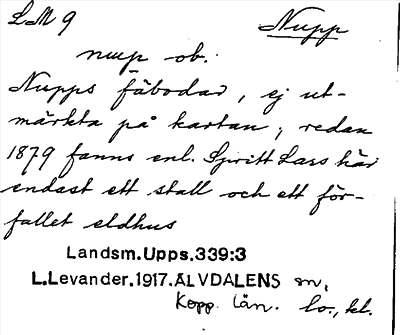 LM 9 Nupp
nup ob.
Nupps fäbodar, ej ut-
märkta på kartan, redan
1879 fanns enl. Spritt Lars här
endast ett stall och ett för-
fallet eldhus
Landsm.Upps.339:3
L.Levander.1917.ÄLVDALENS sn,
Kopp. län. lo., kl.